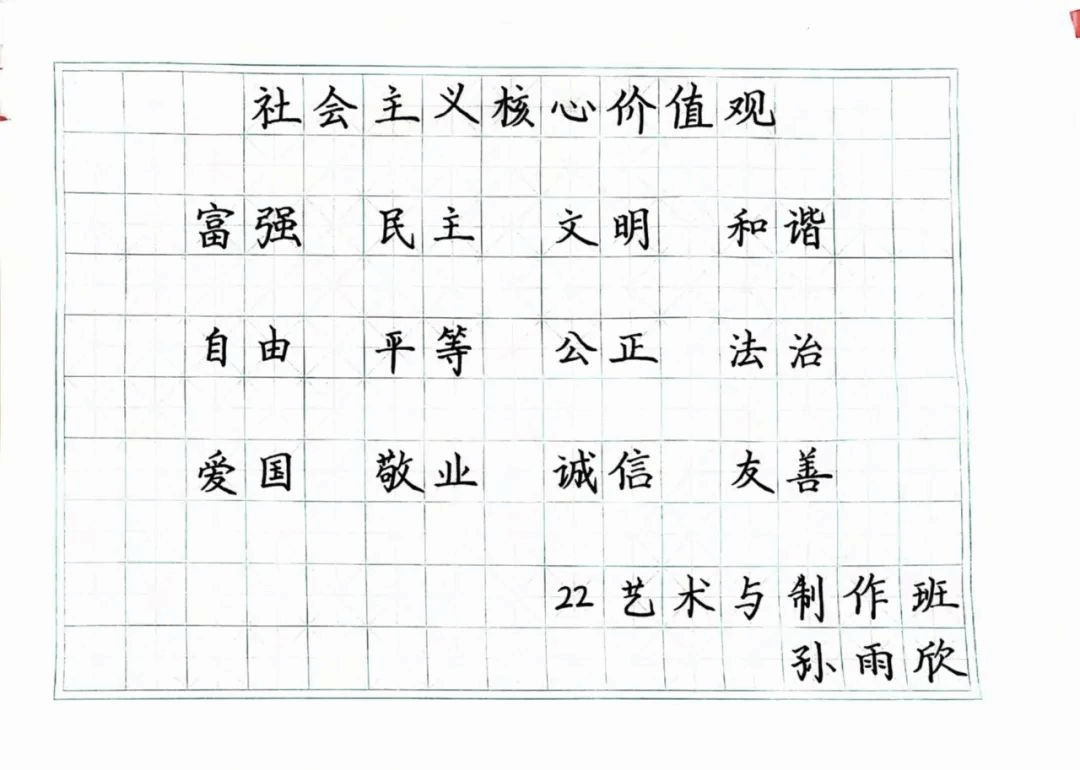 社会主义核心价值观
富强 民主 文明 和谐
自由 平等 公正 法治
爱国 敬业 诚信 友善
22艺术与制作班
孙雨欣